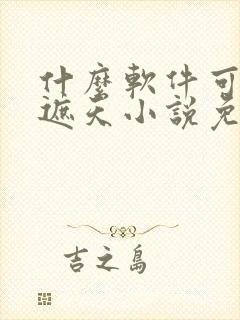 什麼軟件可
遮天小說免
吉之島